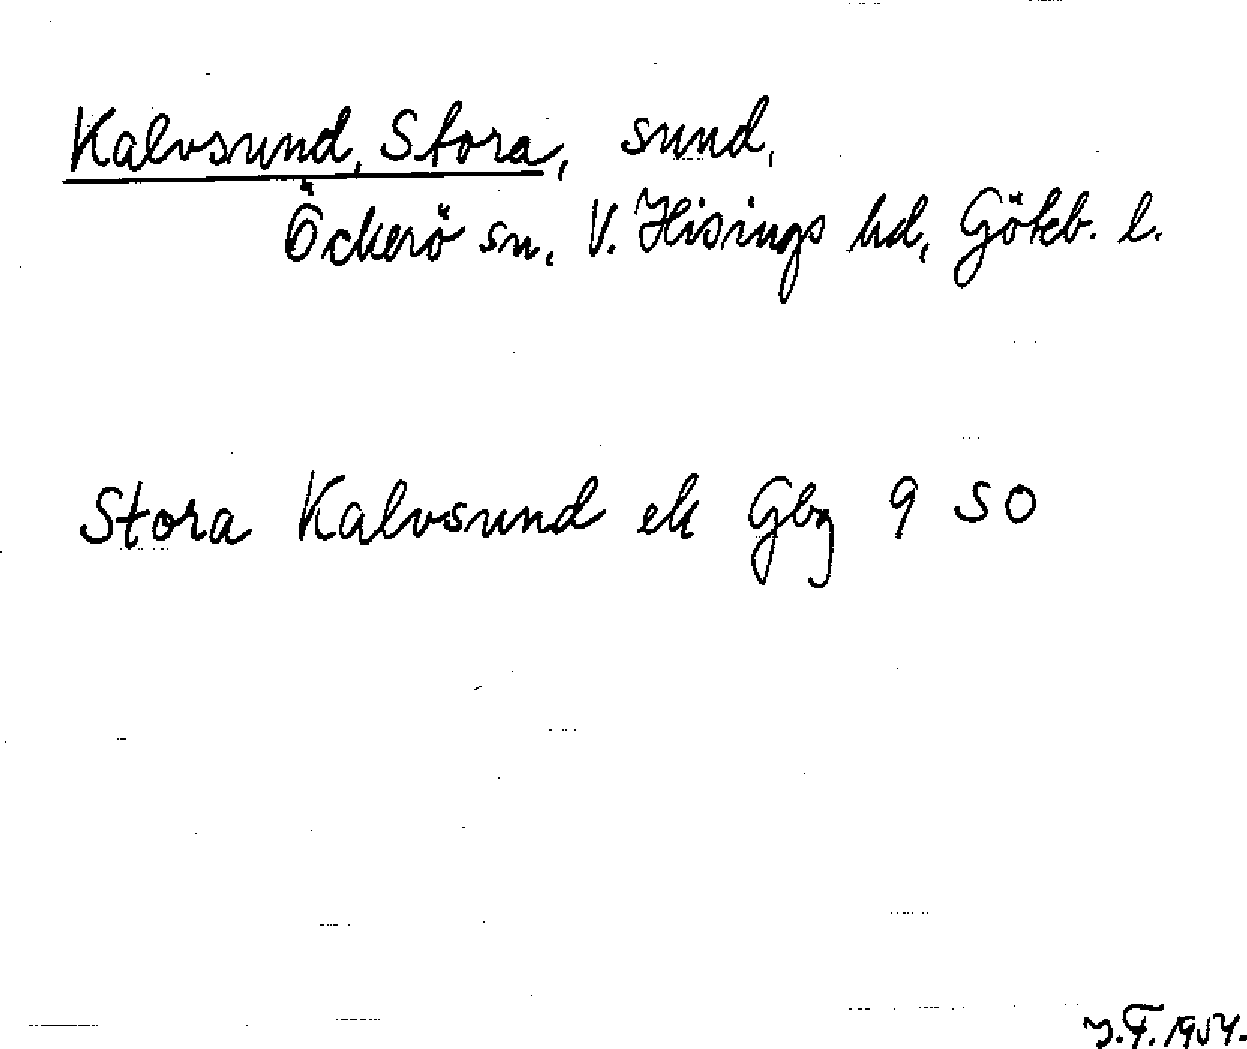 Kalvsund, Stora, sund,
Öckerö sn, V. Hisings hd, Göteb. l.
Stora Kalvsund ek Gbg 9 SO
1954.